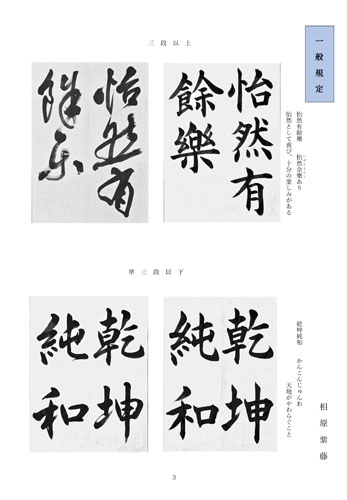 一般規定
三段以上
怡然有餘樂　怡然余樂あり
怡然として喜び、十分の楽しみがある
怡然有
餘樂
怡然有
餘樂
準三段以下
乾坤純和　かんこんじゅんわ
天地がやわらぐこと
相原紫藤
乾坤
純和
乾坤
純和
3